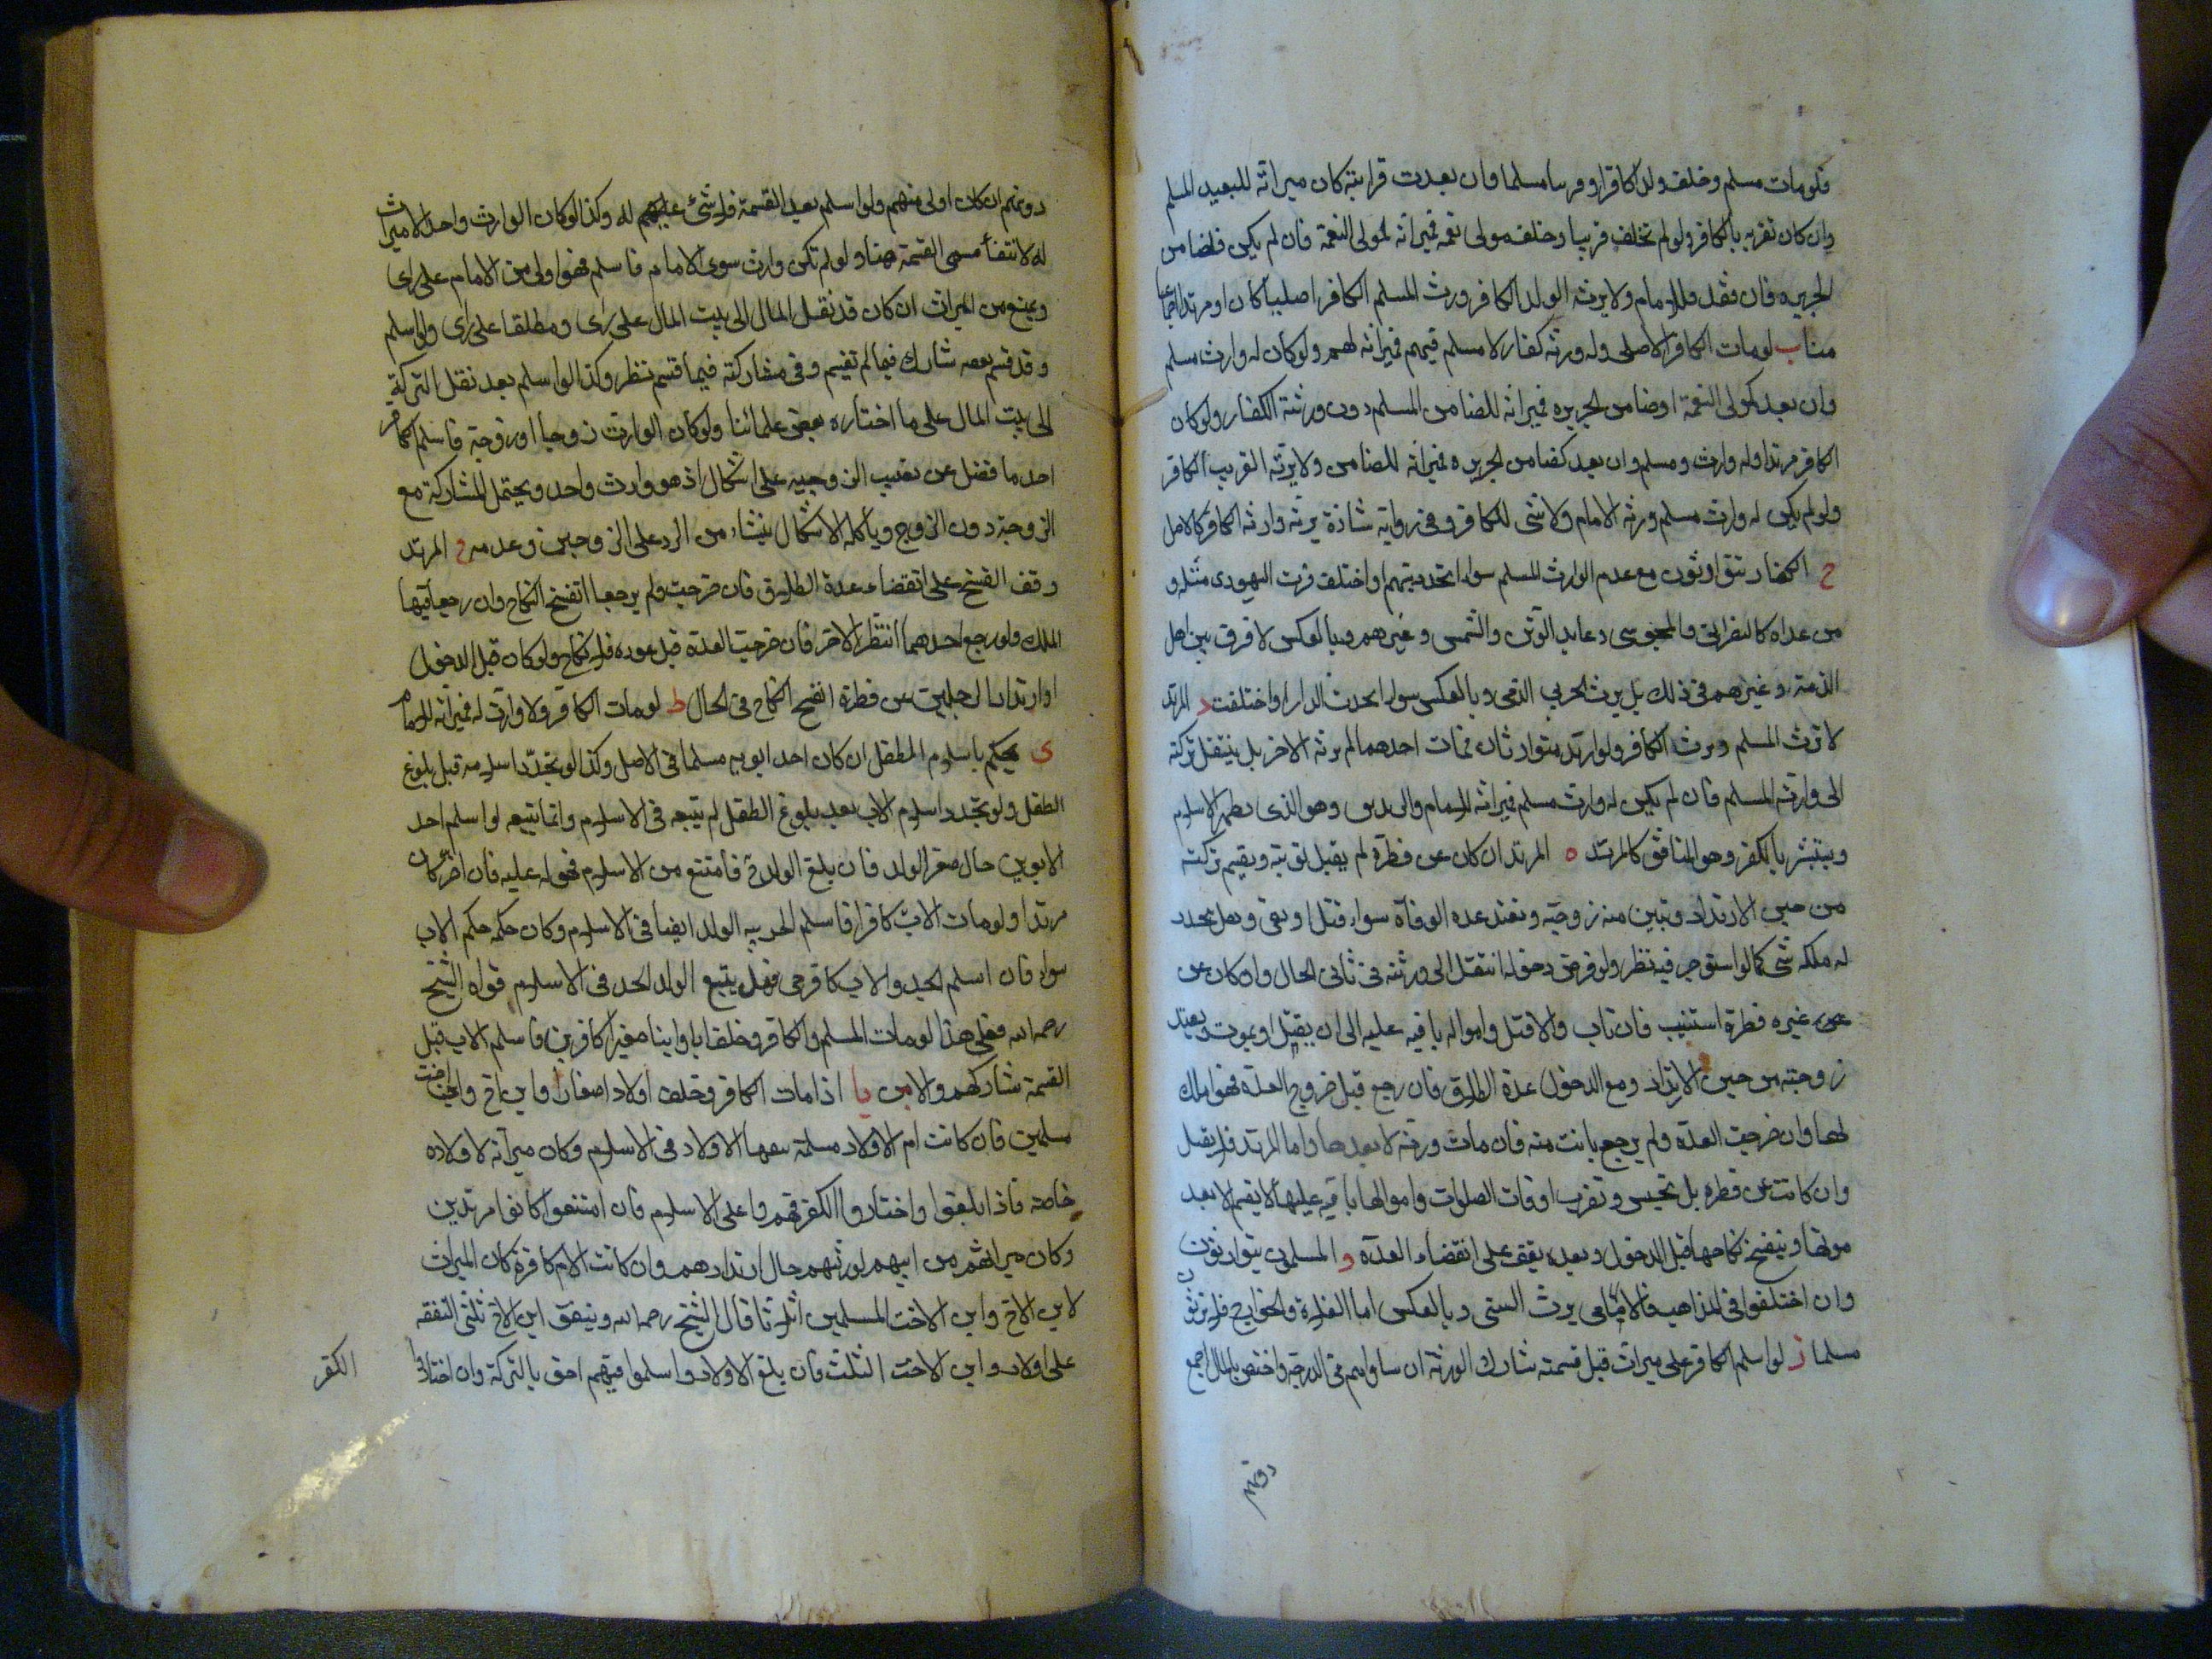 فلومات مسلم وخلف ولدا كافرا وقريبا مسلما وان بعدت قرابته كان ميراثه للبعيد المسلم
وان كان تقربه بالكافر ولو لم يخلف قريبا وخلف مولى نعمة فميراثه لمولى النعمة فان لم يكن فلضامن
الجريره فان فقد فللامام ولا يرثه الولد الكافر ورث المسلم الكافر اصليا كان او مرتدا
ب لومات الكافر الاصلى وله ورثه كفار لا مسلم فيهم فميراثه لهم ولو كان له وارث مسلم
وان بعد كمولى النعمة اوضامن الجريره فميراثه للضامن المسلم دون ورثته الكفار ولو كان
الكافر مرتدا وله وارث ومسلم وان بعد كضامن الجريره فميراثه للضامن ولا يرثه القريب الكافر
ولو لم يكن له وارث مسلم ورثه الامام ولا شى للكافر وفى رواية شاذة يرثه وارثه الكافر كالاصل
ح الكفار يتوارثون مع عدم الوارث المسلم سواء اتحد دينهم او اختلف فرث اليهودى مثله و
من عداه كالنصرانى والمجوسى وعابد الوثن والشمس وغيرهم وبالعكس لا فرق بين اهل
الذمة وغيرهم فى ذلك بل يرث الحربى الذمى وبالعكس سواء اتحدث الدار او اختلفت د المرتد
لا ترث المسلم ويرث الكافر ولو ارتد متوارثان فمات احدهما لم يرثه الاخر بل ينتقل تركته
الى وارثه المسلم فان لم يكن له وارث مسلم فميراثه للامام والزنديق وهو الذى يظهر الاسلام
ويستتر بالكفر وهو المنافق كالمرتد ه المرتد ان كان عن فطرة لم يقبل توبته ويقسم تركته
من حين الارتداد وتبين منه زوجته وتعتد عده الوفاة سواء قتل او بقى وهل يتجدد
له ملكه شى كما لو استوجر فيه نظر ولو فرض دخوله انتقل الى ورثته فى ثانى الحال وان كان عن
عن غيره فطرة استتيب فان تاب والا قتل وامواله باقيه عليه الى ان يقتل او يموت ويعتد
زوجته من حين الارتداد ومع الدخول عدة الطلاق فان رجع قبل خروج العده فهو املك
لها وان خرجت العدة ولم يرجع بانت منه فان مات ورثته لا بعدها واما المرتد فلا يقتل
وان كانت عن فطرة بل تحبس وتضرب اوقات الصلوات واموالها باقيه عليها لا يقسم الا بعد
موتها وينفسخ نكاحها قبل الدخول وبعده يقف على انقضاء العدة و المسلمون يتوارثون
وان اختلفوا فى المذاهب فالامامى يرث السنى وبالعكس اما الغلاة والخوارج فلا يرثون
مسلما ز لو اسلم الكافر على ميراث قبل قسمته شارك الورثة ان ساواهم فى الدرجة واختص بالمال اجمع
دونهم
دونهم ان كان اولى منهم ولو اسلم بعد القسمة فلا شئ عليهم له وكذا لو كان الوارث واحدا لا ميراث
له لانتفاء مسمى القسمة هنا ولو لم تكن وارث سوى الامام فاسلم فهو اولى من الامام على راى
ويمنع من الميراث ان كان قد نقل المال الى بيت المال على راى ومطلقا على راى ولو اسلم
وقد قسم بعضه شارك فيما لم تقسم وفى مشاركته فيما قسم نظر وكذا لو اسلم بعد نقل التركة
الى بيت المال على ما اختاره بعض علمائنا ولو كان الوارث زوجا او زوجة فاسلم الكافر
احد ما فضل عن نصيب الزوجيه على اشكال اذ هو وارث واحد ويحتمل المشاركة مع
الزوجة دون الزوج وبالجملة الاشكال ينشاء من الرد على الزوجين وعدمه ح المرتد
وقف الفسخ على انقضاء عدة الطلاق فان خرجت ولم يرجعا انفسخ النكاح وان رجعا فيها
الملك ولو رجع احدهما انتظر الاخر فان خرجت العدة قبل عوده فلا نكاح ولو كان قبل الدخول
او ارتد الرجلين عن فطرة انفسخ النكاح فى الحال ط لو مات الكافر ولا وارث له فميراثه للامام
ى يحكم باسلام الطفل ان كان احد ابويه مسلما فى الاصل وكذا لو تجدد اسلامه قبل بلوغ
الطفل ولو تجدد اسلام الاب بعد بلوغ الطفل لم يتبعه فى الاسلام وانما يتبعه لو اسلم احد
الابوين حال صغر الولد فان بلغ الولد فامتنع من الاسلام قهر له عليه فان اصر كان
مرتدا ولو مات الاب كافرا فاسلم الجد تبعه الولد ايضا فى الاسلام وكان حكمه حكم الاب
سواء فان اسلم الجد والاب كافر حى فهل يتبع الولد الجد فى الاسلام قواه الشيخ
رحمه الله فعلى هذا لو مات المسلم والكافر وخلف ابا وابنا صغيرا كافرين فاسلم الاب قبل
القسمة شاركهم والابن يا اذا مات الكافر وخلف اولادا صغارا وابن اخ وابن اخت
مسلمين فان كانت ام الاولاد مسلمة تبعها الاولاد فى الاسلام وكان ميراثه لاولاده
خاصة فاذا بلغوا واختاروا الكفر قهروا على الاسلام فان امتنعوا كانوا مرتدين
وكان ميراثهم من ابيهم لورثتهم حال ارتدادهم وان كانت الام كافرة كان الميراث
لابن الاخ وابن الاخت المسلمين اثلاثا قال الشيخ رحمه الله وينفق ابن الاخ ثلثى النفقه
على اولاد وابن الاخت الثلث فان بلغ الاولاد واسلموا فيهم احق بالتركة وان اختاروا
الكفر